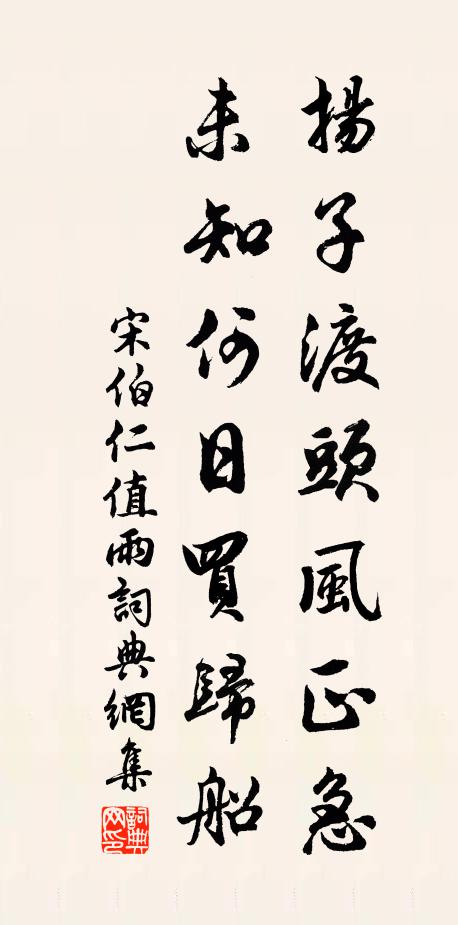 揚子渡頭風正急
未知何日買歸船
宋伯仁值雨詞典網集
詞典网印